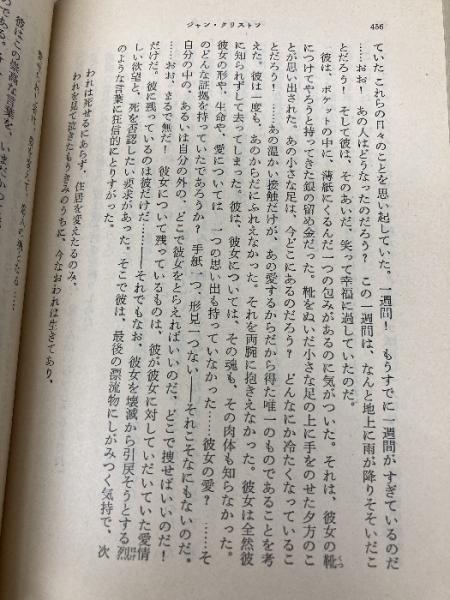 456
ジャン・クリストフ
ていたこれらの日々のことを思い起していた。一週間! もうすでに一週間がすぎているのだ
……おお! あの人はどうなったのだろう? この一週間は、なんと地上に雨が降りそそいだこ
とだろう! そして彼は、そのあいだ、笑って幸福に過していたのだ。
彼は、ポケットの中に、薄紙にくるんだ一つの包みがあるのに気がついた。それは、彼女の靴
くつ
につけてやろうと持ってきた銀の留め金だった。靴をぬいだ小さな足の上に手をのせた夕方のこ
とが思い出された。あの小さな足は、今どこにあるのだろう? どんなにか冷たくなっているこ
とだろう!……あの温かい接触だけが、あの愛するからだから得た唯一のものであることを考
えた。彼は一度も、あのからだにふれえなかった。それを両腕に抱きえなかった。彼女は全然彼
に知られずして去ってしまった。彼は、彼女については、その魂も、その肉体も知らなかった。
彼女の形や、生命や、愛については一つの思い出も持っていなかった……彼女の愛?……そ
のどんな証拠を持っていたであろうか? 手紙一つ、形見一つない――それこそなにもないのだ。
自分の中の、あるいは自分の外の、どこで彼女をとらえればいいのだ、どこで捜せばいいのだ!
……おお、まるで無だ! 彼女について残っているものは、彼が彼女に対していだいていた愛情
だけだ。彼に残っているのは彼だけだ――それでもなお、彼女を壊滅から引戻そうとする烈
しい欲望と、死を否認したい要求があった。そこで彼は、最後の漂流物にしがみつく気持で、次
のような言葉に狂信的にとりすがった。
われは死せるにあらず、住居を変えたるのみ、
われを見て泣きたもうきみのうちに、今なおわれは生きてあり、
彼はこの崇高な言葉を、